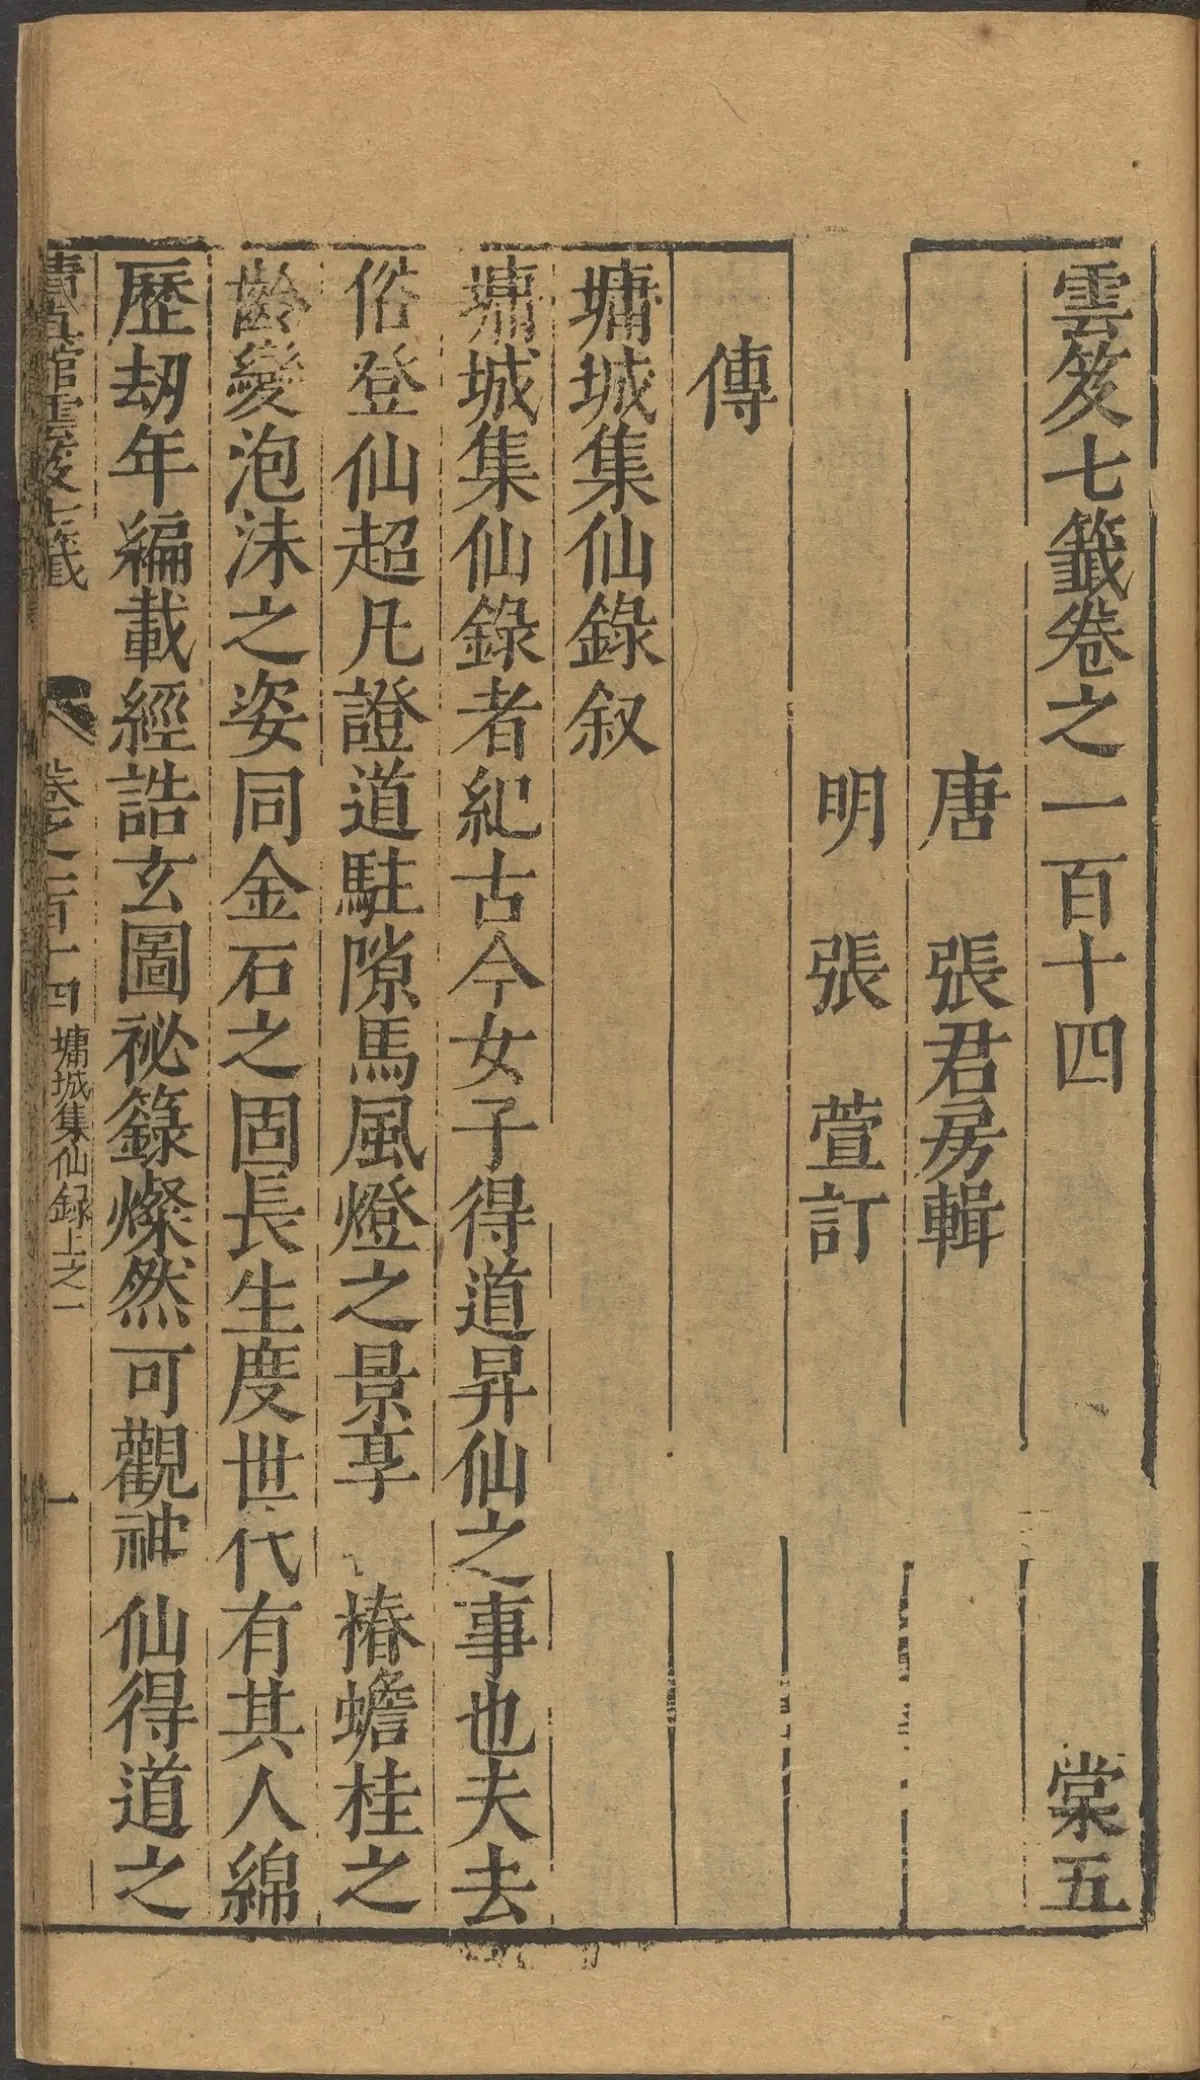 雲笈七籤卷之一百十四 棠五
唐 張君房輯
明 張 萱訂
傳
墉城集仙錄叙
墉城集仙錄者紀古今女子得道昇仙之事也夫去
俗登仙超凡證道駐隙馬風燈之景享 椿蟾桂之
齡變泡沫之姿同金石之固長生度世代有其人綿
歷劫年編載經誥玄圖祕籙燦然可觀神仙得道之
清真館雲笈七籤 卷之一百十四 墉城集仙録上之一 一